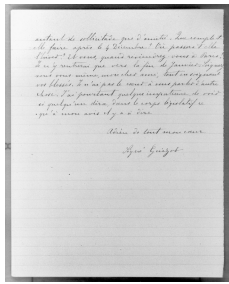 autant de sollicitude que d'amitié. Son complet
elle faire après le 4 Décembre? Où passera-t-elle
l'hiver? Et vous quand reviendrez-vous à Paris?
Je n'y rentrerai que vers la fin de Janvier. Soignez
vous vous même, mon cher ami, tout en soignant
vos blessés. Je n'ai pas le cœur à vous parler d'autre
chose. J'ai pourtant quelque impatience de voir
si quelqu'un dira, dans le corps législatif ce
qu'à mon avis il y a à dire.
Adieu de tout mon cœur
Guizot